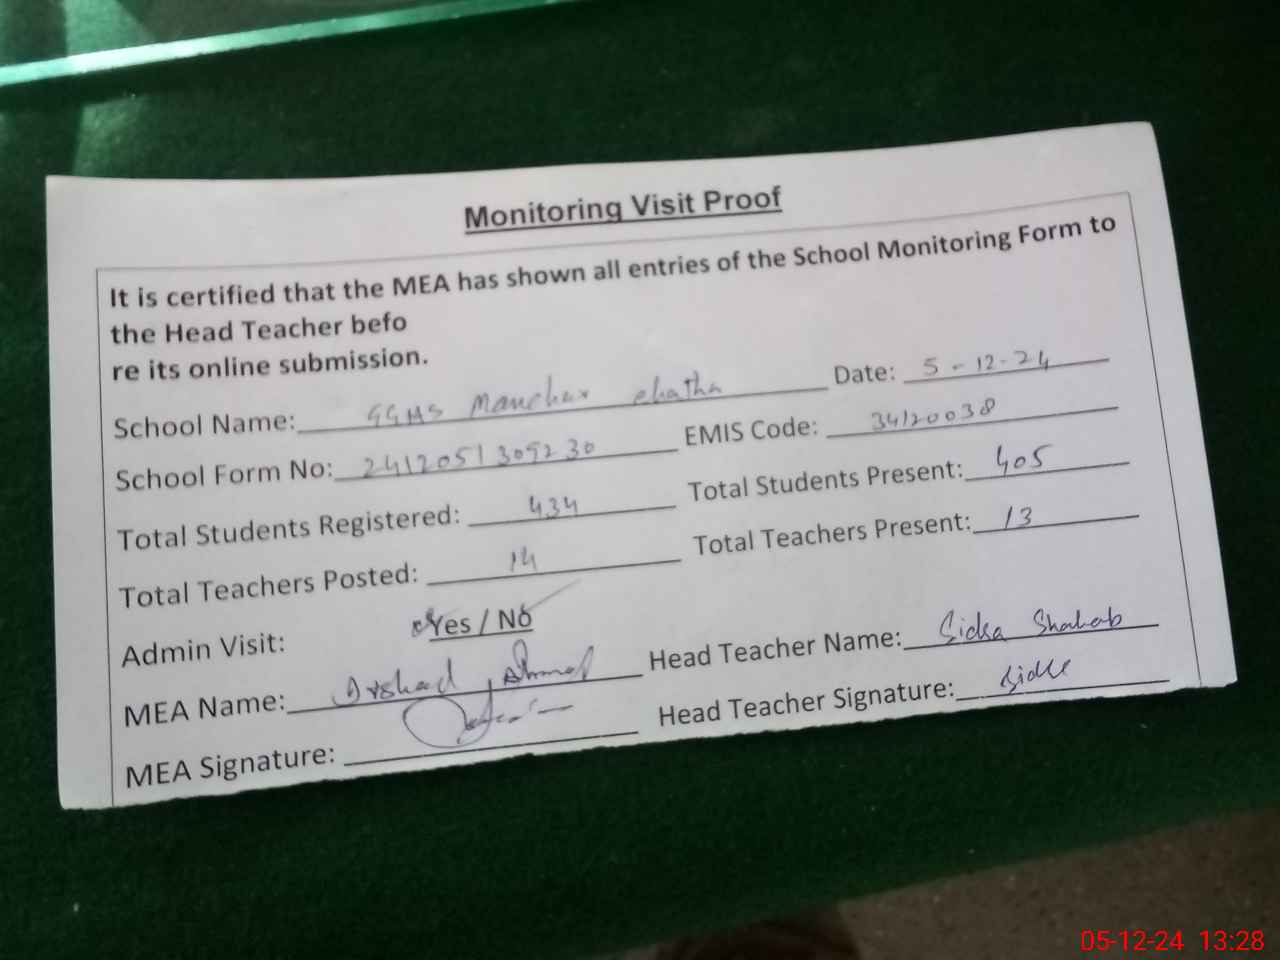 Monitoring Visit Proof
It is certified that the MEA has shown all entries of the School Monitoring Form to
the Head Teacher befo
re its online submission.
School Name: GGHS Manchar chatha Date: 5-12-24
School Form No: 2412051309230 EMIS Code: 34120038
Total Students Registered: 434 Total Students Present: 405
Total Teachers Posted: 14 Total Teachers Present: 13
Admin Visit: Yes / No
MEA Name: Irshad Ahmad Head Teacher Name: Sidra Shahab
MEA Signature: Head Teacher Signature:
05-12-24 13:28